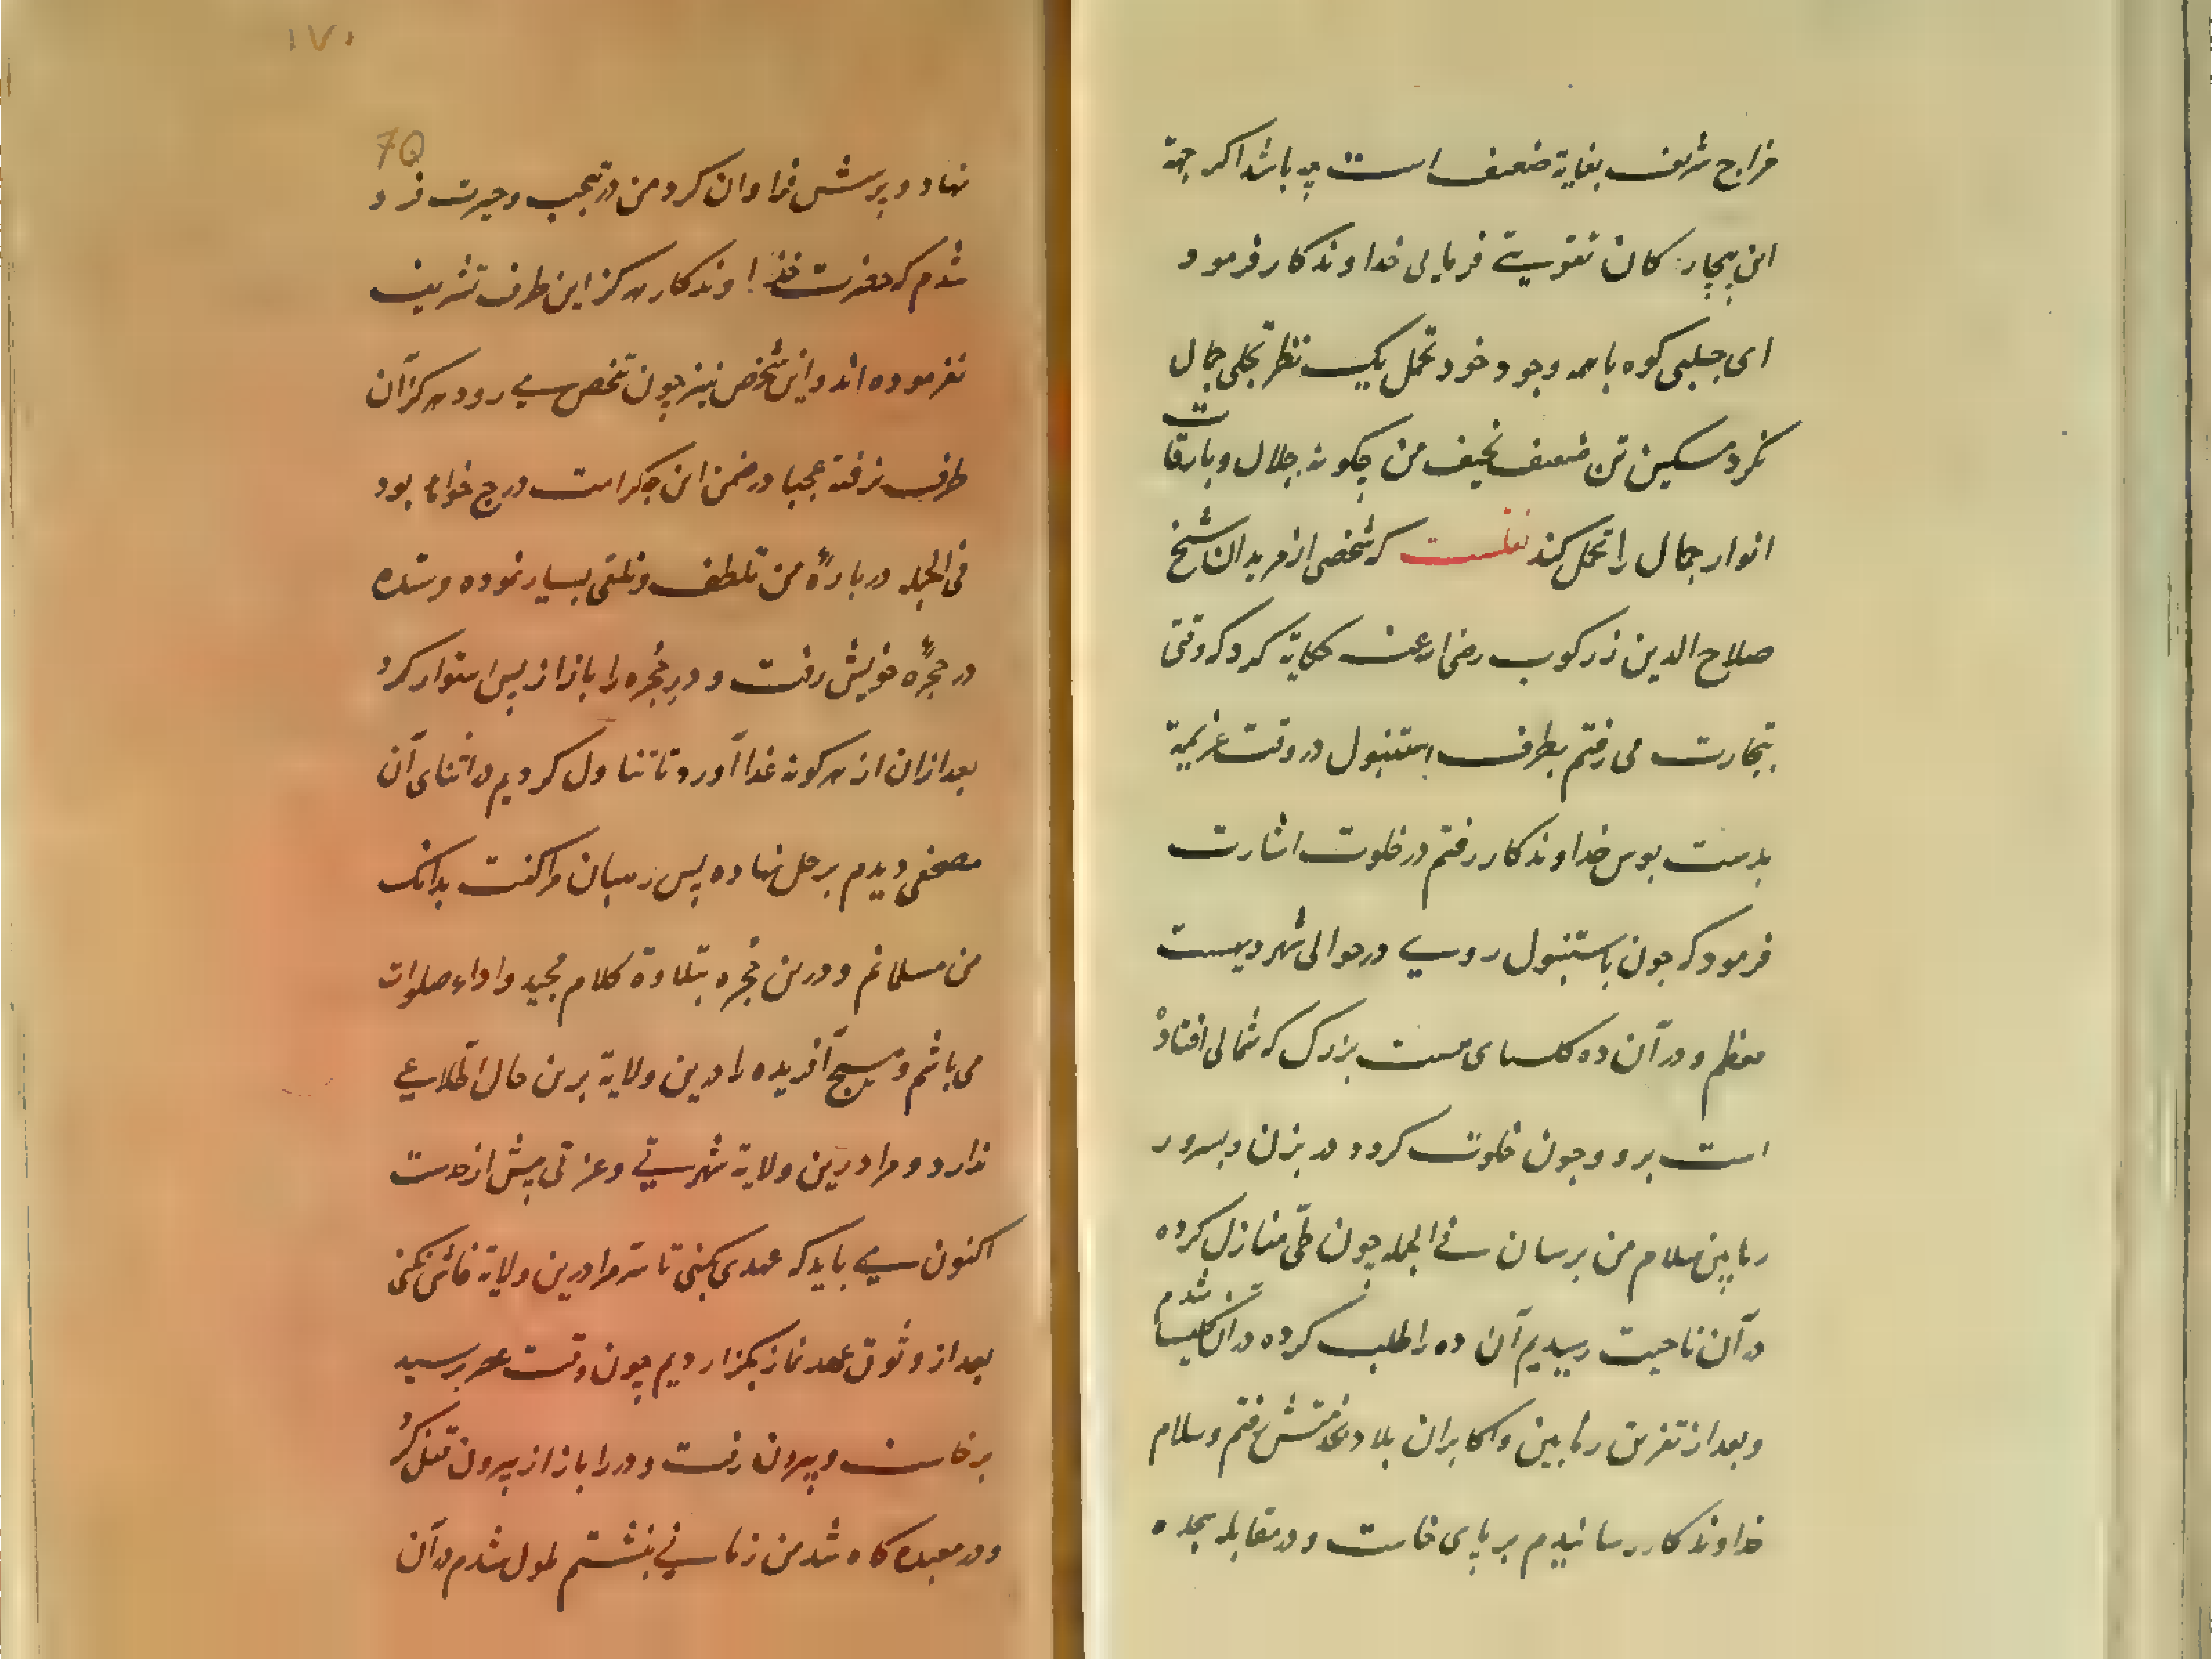 مزاج شریف بغایة ضعیف است چه باشد اکر جهة
این بیچارکان تقویتی فرمایی خداوندکار فرمود
ای چلبی کوه با همه وجود خود تحمل یک نظر تجلی جمال
نکرد مسکین تن ضعیف نحیف من چکونه جلال و بارقات
انوار جمال را تحمل کند نقلست که شخصی از مریدان شیخ
صلاح الدین زرکوب رضی الله عنه حکایة کرد که وقتی
بتجارت می رفتم بطرف استنبول در وقت عزیمة
بدست بوس خداوندکار رفتم در خلوت اشارت
فرمود که چون باستنبول رسی در حوالی شهر دیهیست
معظم و در آن ده کلیسای هست بزرک که شمالی افتاده
است برو و چون خلوت کردد در بزن و بسرور
رهابین سلام من برسان فی الجمله چون طی منازل کرده
در آن ناحیت رسیدیم آن ده را طلب کرده در آن کلیسا شدم
و بعد از تفرس رهابین و اکابران بلاد بخدمتش رفتم و سلام
خداوندکار رسانیدم بر پای خاست و در مقابله سجده
۱۷۰
70
نهاد و پرسش فراوان کرد من در تعجب و حیرت فرو
شدم که حضرت خداوندکار هرکز این طرف تشریف
نفرموده اند و این شخص نیز چون تخص می رود هرکز آن
طرف نرفته عجبا در ضمن این چه کرامت درج خواهد بود
فی الجمله درباره من تلطف و تملقی بسیار نموده و ستده
در حجره خویش رفت و در حجره را باز از پس استوار کرد
بعد از آن از هرکونه غذا آورد تا تناول کردیم در اثنای آن
مصحفی دیدم بر رحل نهاده پس رهبان مرا کفت بدانک
من مسلمانم و درین حجره بتلاوة کلام مجید و اداء صلوات
می باشم و هیچ آفریده را درین ولایة برین حال اطلاعی
ندارد و مرا درین ولایة شهرتی و عزتی بیش از حدست
اکنون می باید که عهدی بکنی تا سر مرا درین ولایة فاش نکنی
بعد از وثوق عهد نماز بکزاردیم چون وقت عصر برسید
برخاست و بیرون رفت و در را باز از بیرون قفل کرد
و در معبده کاه شد من زمانی بنشستم ملول شدم در آن